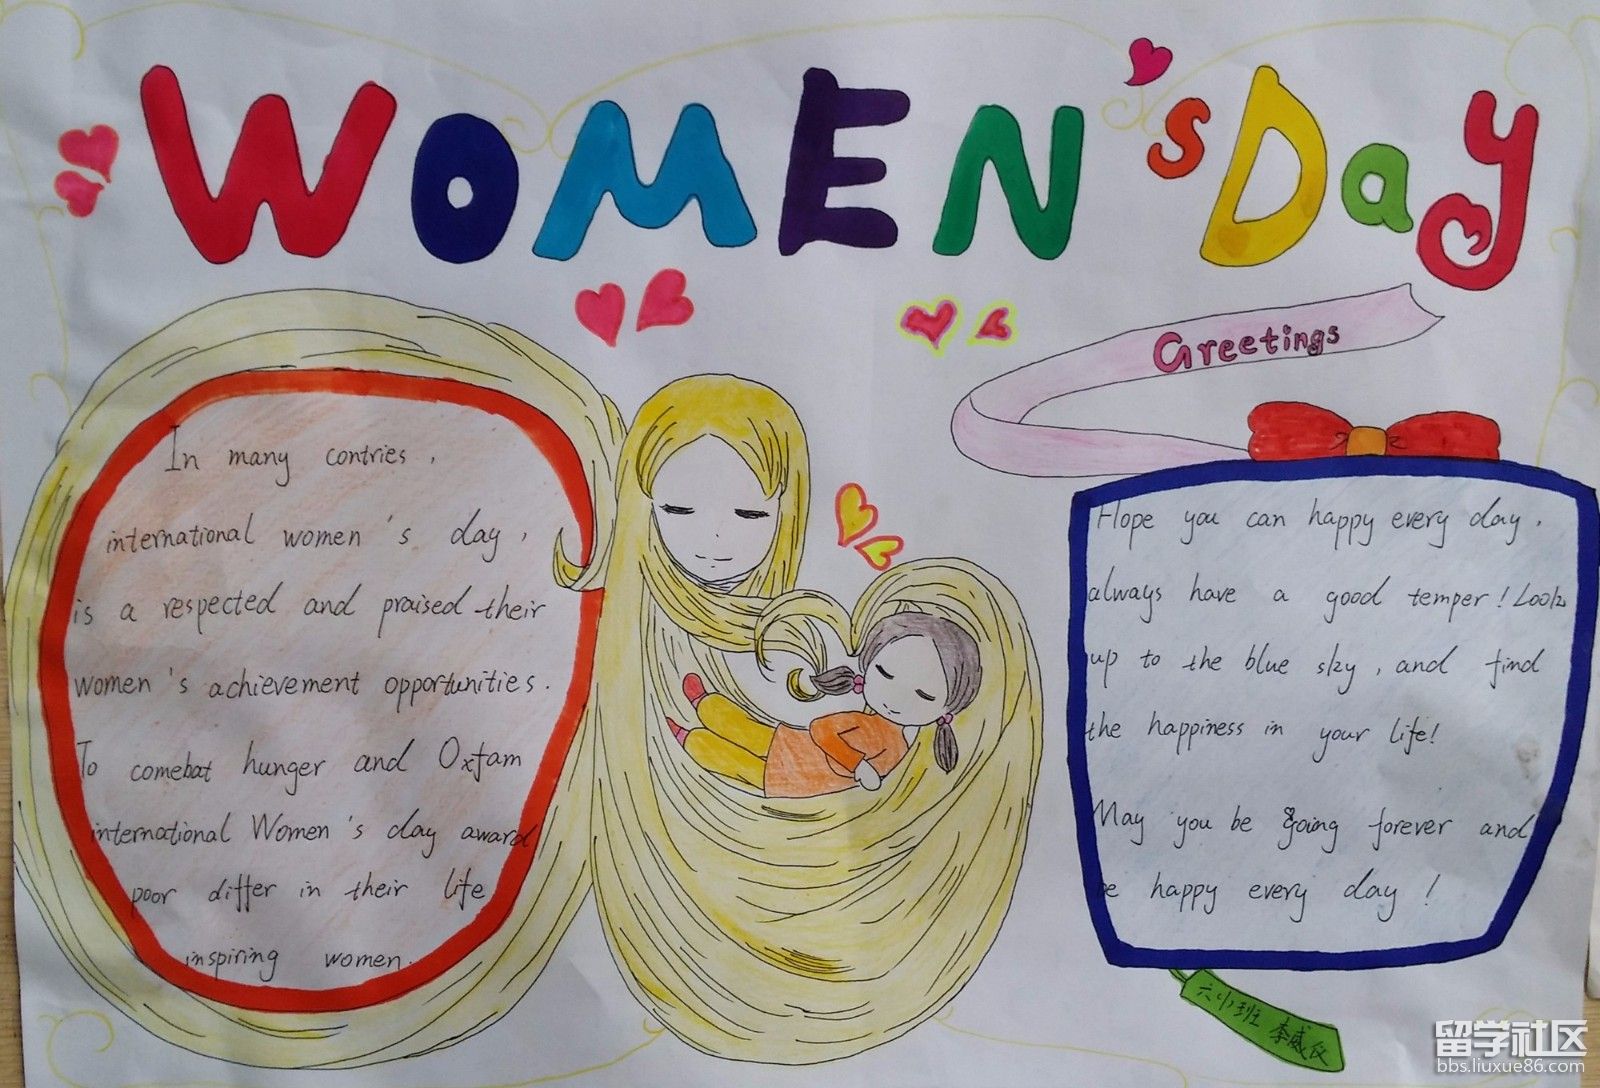 WOMEN'S Day
Greetings
In many contries,
international women's day,
is a respected and praised their
women's achievement opportunities.
To comebat hunger and Oxfam
international Women's day award
poor differ in their life
inspiring women.
Hope you can happy every day,
always have a good temper! Look
up to the blue sky, and find
the happiness in your life!
May you be going forever and
be happy every day!
李威仪
留学社区
bbs.liuxue86.com